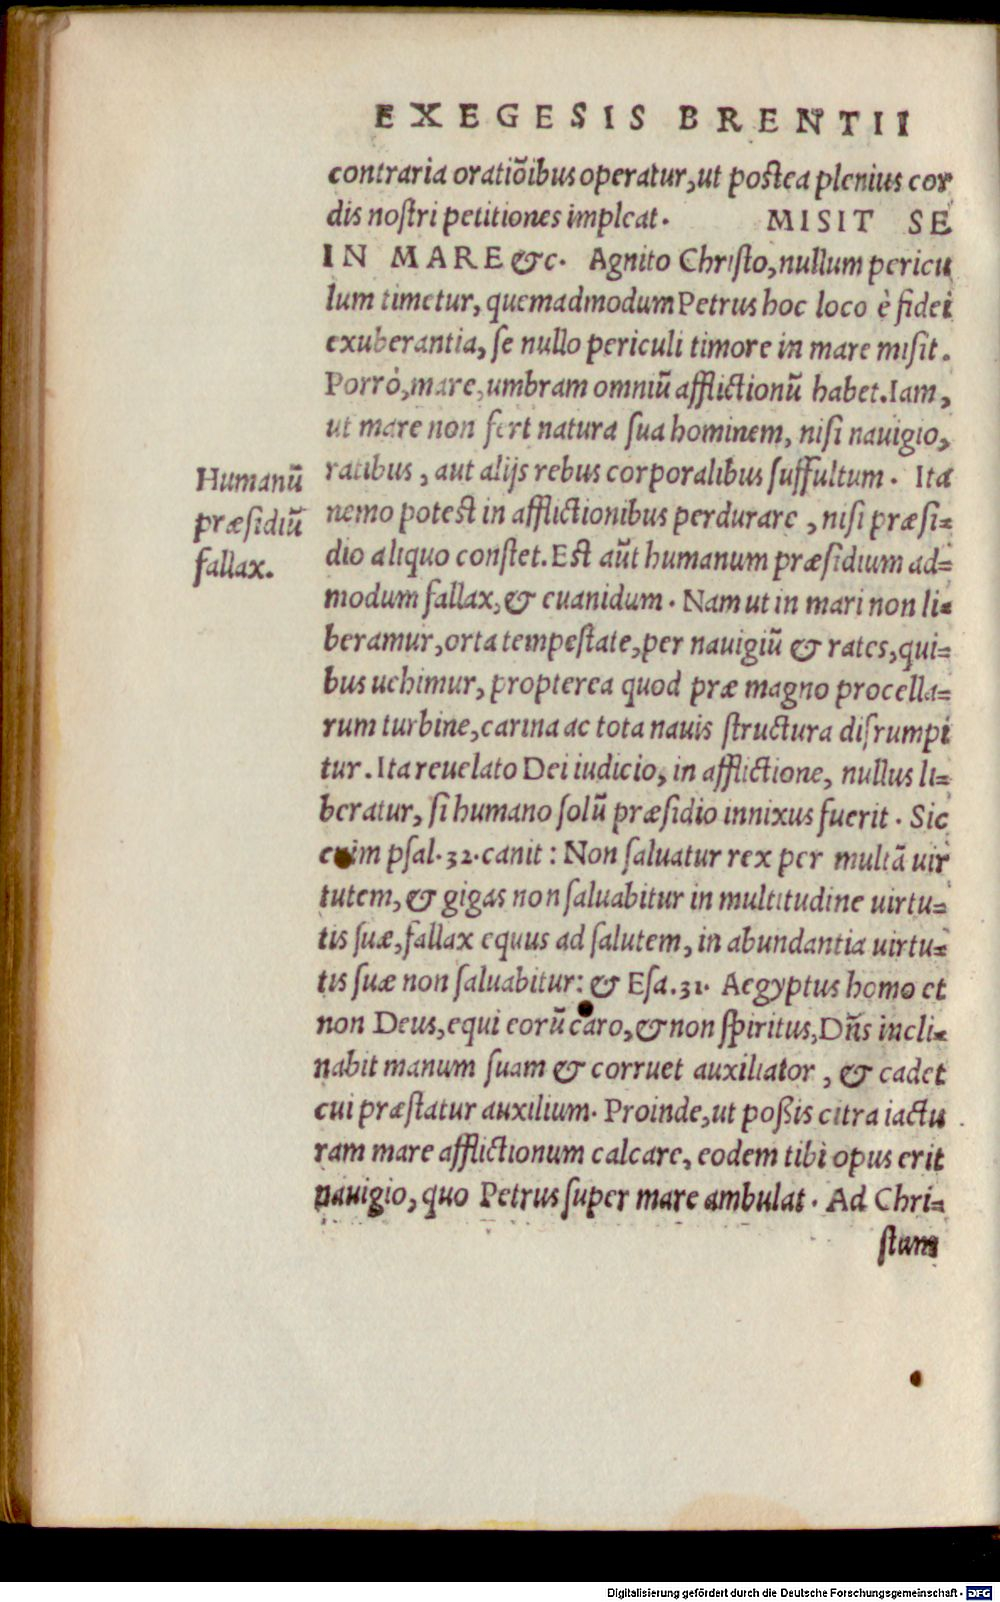 EXEGESIS BRENTII
contraria oratiōibus operatur, ut postea plenius cor
dis nostri petitiones impleat. MISIT SE
IN MARE &c. Agnito Christo, nullum pericu
lum timetur, quemadmodum Petrus hoc loco è fidei
exuberantia, se nullo periculi timore in mare misit.
Porrò, mare, umbram omniū afflictionū habet. Iam,
ut mare non fert natura sua hominem, nisi nauigio,
ratibus, aut alijs rebus corporalibus suffultum. Ita
Humanū
præsidiū
fallax.
nemo potest in afflictionibus perdurare, nisi præsi=
dio aliquo constet. Est aūt humanum præsidium ad=
modum fallax, & euanidum. Nam ut in mari non li=
beramur, orta tempestate, per nauigiū & rates, qui=
bus uehimur, propterea quod præ magno procella=
rum turbine, carina ac tota nauis structura disrumpi
tur. Ita reuelato Dei iudicio, in afflictione, nullus li=
beratur, si humano solū præsidio innixus fuerit. Sic
enim psal. 32. canit: Non saluatur rex per multā uir
tutem, & gigas non saluabitur in multitudine uirtu=
tis suæ, fallax equus ad salutem, in abundantia uirtu=
tis suæ non saluabitur: & Esa. 31. Aegyptus homo et
non Deus, equi eorū caro, & non spiritus, Dn̄s incli=
nabit manum suam & corruet auxiliator, & cadet
cui præstatur auxilium. Proinde, ut poßis citra iactu
ram mare afflictionum calcare, eodem tibi opus erit
nauigio, quo Petrus super mare ambulat. Ad Chri=
stum
Digitalisierung gefördert durch die Deutsche Forschungsgemeinschaft - DFG